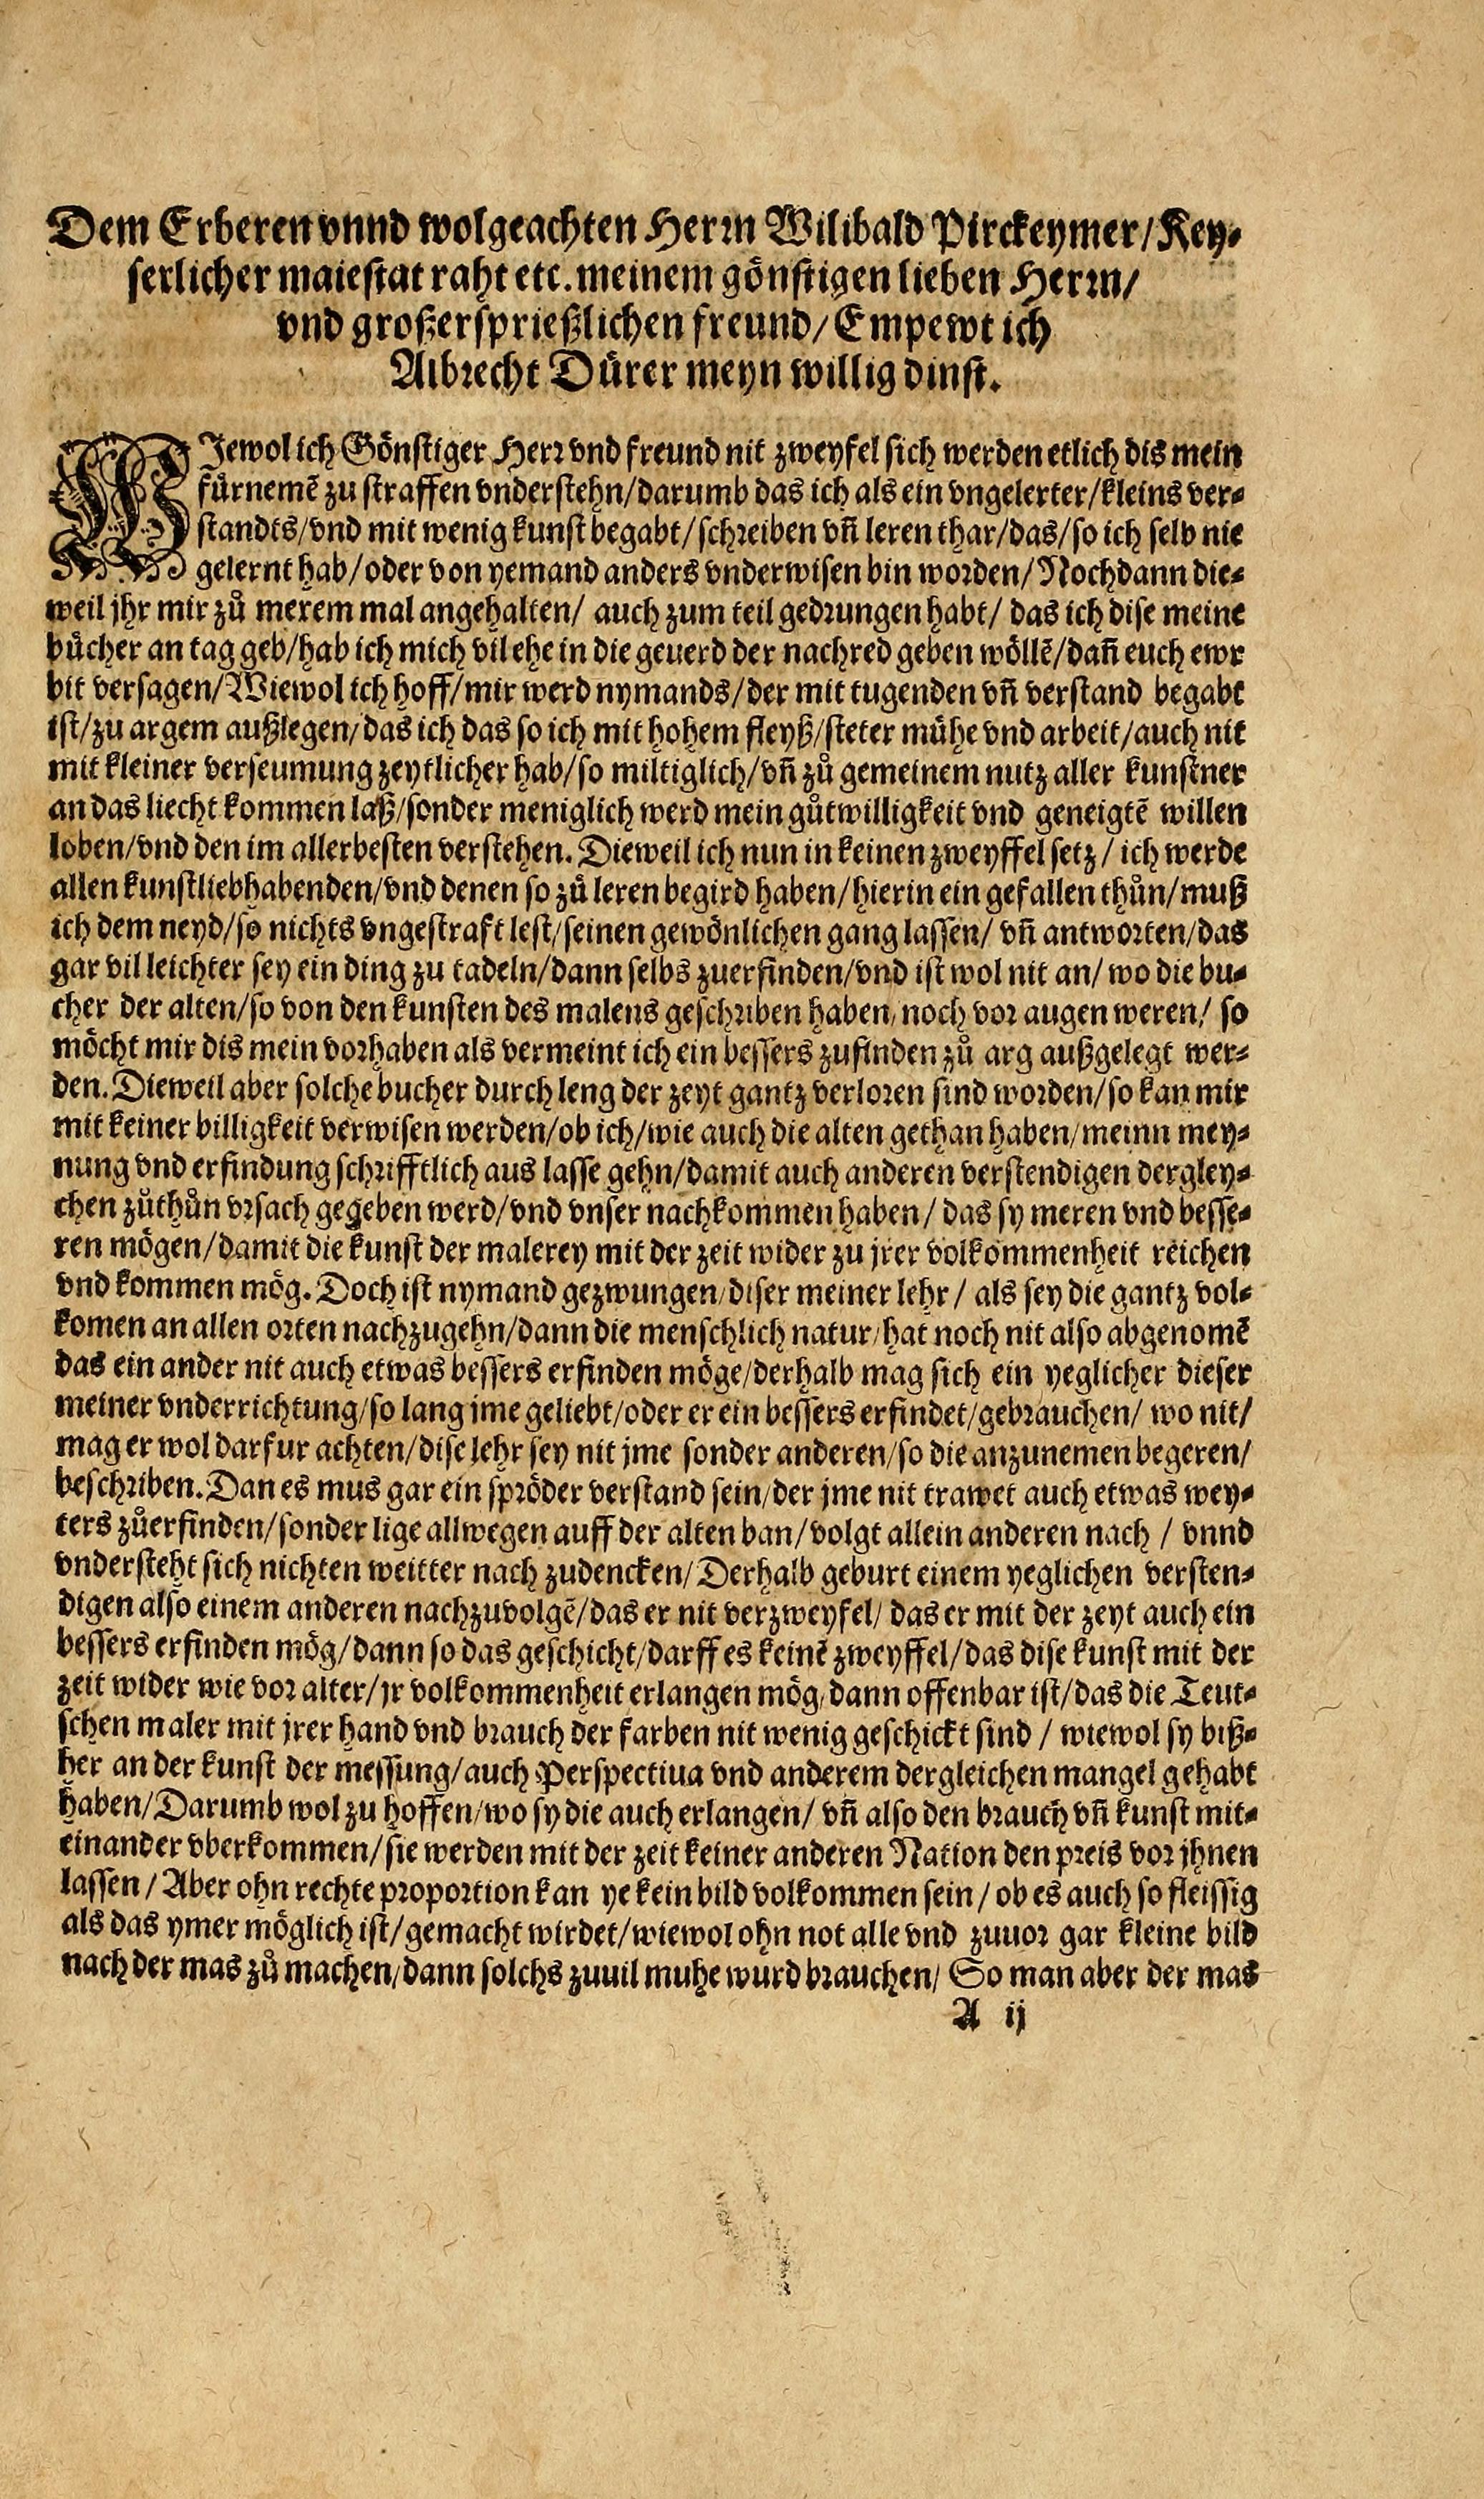 Dem Erberen vnnd wolgeachten Herrn Wilibald Pirckeymer/Key-
serlicher maiestat raht etc. meinem gönstigen lieben Herrn/
vnd großersprießlichen freund/Empewt ich
Albrecht Dürer meyn willig dinst.
WJewol ich Gönstiger Herr vnd freund nit zweyfel sich werden etlich dis mein
fürnemē zu straffen vnderstehn/darumb das ich als ein vngelerter/kleins ver-
standts/vnd mit wenig kunst begabt/schreiben vn̄ leren thar/das/so ich selb nie
gelernt hab/oder von yemand anders vnderwisen bin worden/Nochdann die-
weil jhr mir zů merem mal angehalten/ auch zum teil gedrungen habt/ das ich dise meine
bücher an tag geb/hab ich mich vil ehe in die geuerd der nachred geben wöllē/dan̄ euch ewr
bit versagen/Wiewol ich hoff/mir werd nymands/der mit tugenden vn̄ verstand begabt
ist/zu argem außlegen/das ich das so ich mit hohem fleyß/steter mühe vnd arbeit/auch nit
mit kleiner verseumung zeytlicher hab/so miltiglich/vn̄ zů gemeinem nutz aller kunstner
an das liecht kommen laß/sonder meniglich werd mein gůtwilligkeit vnd geneigtē willen
loben/vnd den im allerbesten verstehen. Dieweil ich nun in keinen zweyffel setz/ ich werde
allen kunstliebhabenden/vnd denen so zů leren begird haben/hierin ein gefallen thůn/muß
ich dem neyd/so nichts vngestraft lest/seinen gewönlichen gang lassen/ vn̄ antworten/das
gar vil leichter sey ein ding zu tadeln/dann selbs zuerfinden/vnd ist wol nit an/ wo die bu-
cher der alten/so von den kunsten des malens geschriben haben/noch vor augen weren/ so
möcht mir dis mein vorhaben als vermeint ich ein bessers zufinden zů arg außgelegt wer-
den. Dieweil aber solche bucher durch leng der zeyt gantz verloren sind worden/so kan mir
mit keiner billigkeit verwisen werden/ob ich/wie auch die alten gethan haben/meinn mey-
nung vnd erfindung schrifftlich aus lasse gehn/damit auch anderen verstendigen dergley-
chen zůthůn vrsach gegeben werd/vnd vnser nachkommen haben/ das sy meren vnd besse-
ren mögen/damit die kunst der malerey mit der zeit wider zu jrer volkommenheit reichen
vnd kommen mög. Doch ist nymand gezwungen/diser meiner lehr/ als sey die gantz vol-
komen an allen orten nachzugehn/dann die menschlich natur/hat noch nit also abgenomē
das ein ander nit auch etwas bessers erfinden möge/derhalb mag sich ein yeglicher dieser
meiner vnderrichtung/so lang jme geliebt/oder er ein bessers erfindet/gebrauchen/ wo nit/
mag er wol darfur achten/dise lehr sey nit jme sonder anderen/so die anzunemen begeren/
beschriben. Dan es mus gar ein spröder verstand sein/der jme nit trawet auch etwas wey-
ters zůerfinden/sonder lige allwegen auff der alten ban/volgt allein anderen nach / vnnd
vndersteht sich nichten weitter nach zudencken/Derhalb geburt einem yeglichen versten-
digen also einem anderen nachzuvolgē/das er nit verzweyfel/ das er mit der zeyt auch ein
bessers erfinden mög/dann so das geschicht/darff es keinē zweyffel/das dise kunst mit der
zeit wider wie vor alter/jr volkommenheit erlangen mög/dann offenbar ist/das die Teut-
schen maler mit jrer hand vnd brauch der farben nit wenig geschickt sind / wiewol sy biß-
her an der kunst der messung/auch Perspectiua vnd anderem dergleichen mangel gehabt
haben/Darumb wol zu hoffen/wo sy die auch erlangen/ vn̄ also den brauch vn̄ kunst mit-
einander vberkommen/sie werden mit der zeit keiner anderen Nation den preis vor jhnen
lassen/Aber ohn rechte proportion kan ye kein bild volkommen sein/ ob es auch so fleissig
als das ymer möglich ist/gemacht wirdet/wiewol ohn not alle vnd zuuor gar kleine bild
nach der mas zů machen/dann solchs zuuil muhe wurd brauchen/ So man aber der mas
A ij